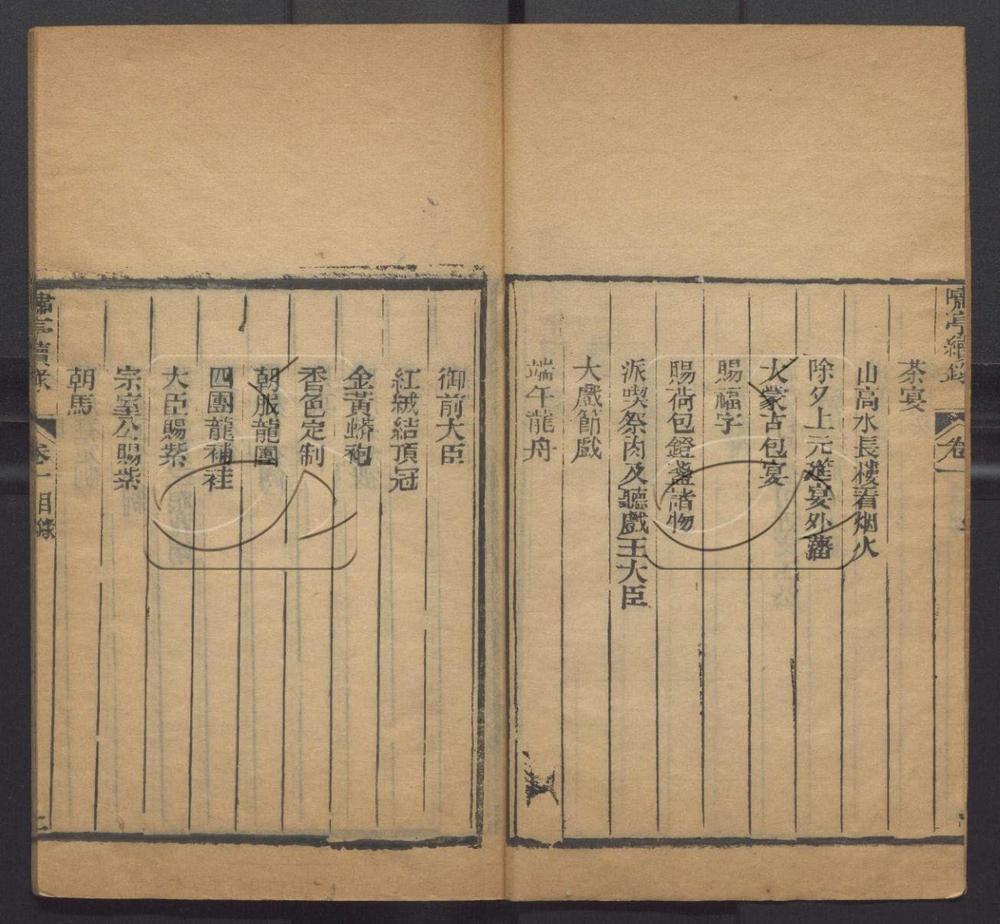 嘯亭續錄
卷一
茶宴
山高水長樓看烟火
除夕上元筵宴外藩
大蒙古包宴
賜福字
賜荷包鐙盞諸物
派喫祭肉及聽戲王大臣
大戲節戲
端午龍舟
御前大臣
紅絨結頂冠
金黃蟒袍
香色定制
朝服龍團
四團龍補褂
大臣賜紫
宗室公賜紫
朝馬
嘯亭續錄
卷一目錄
二